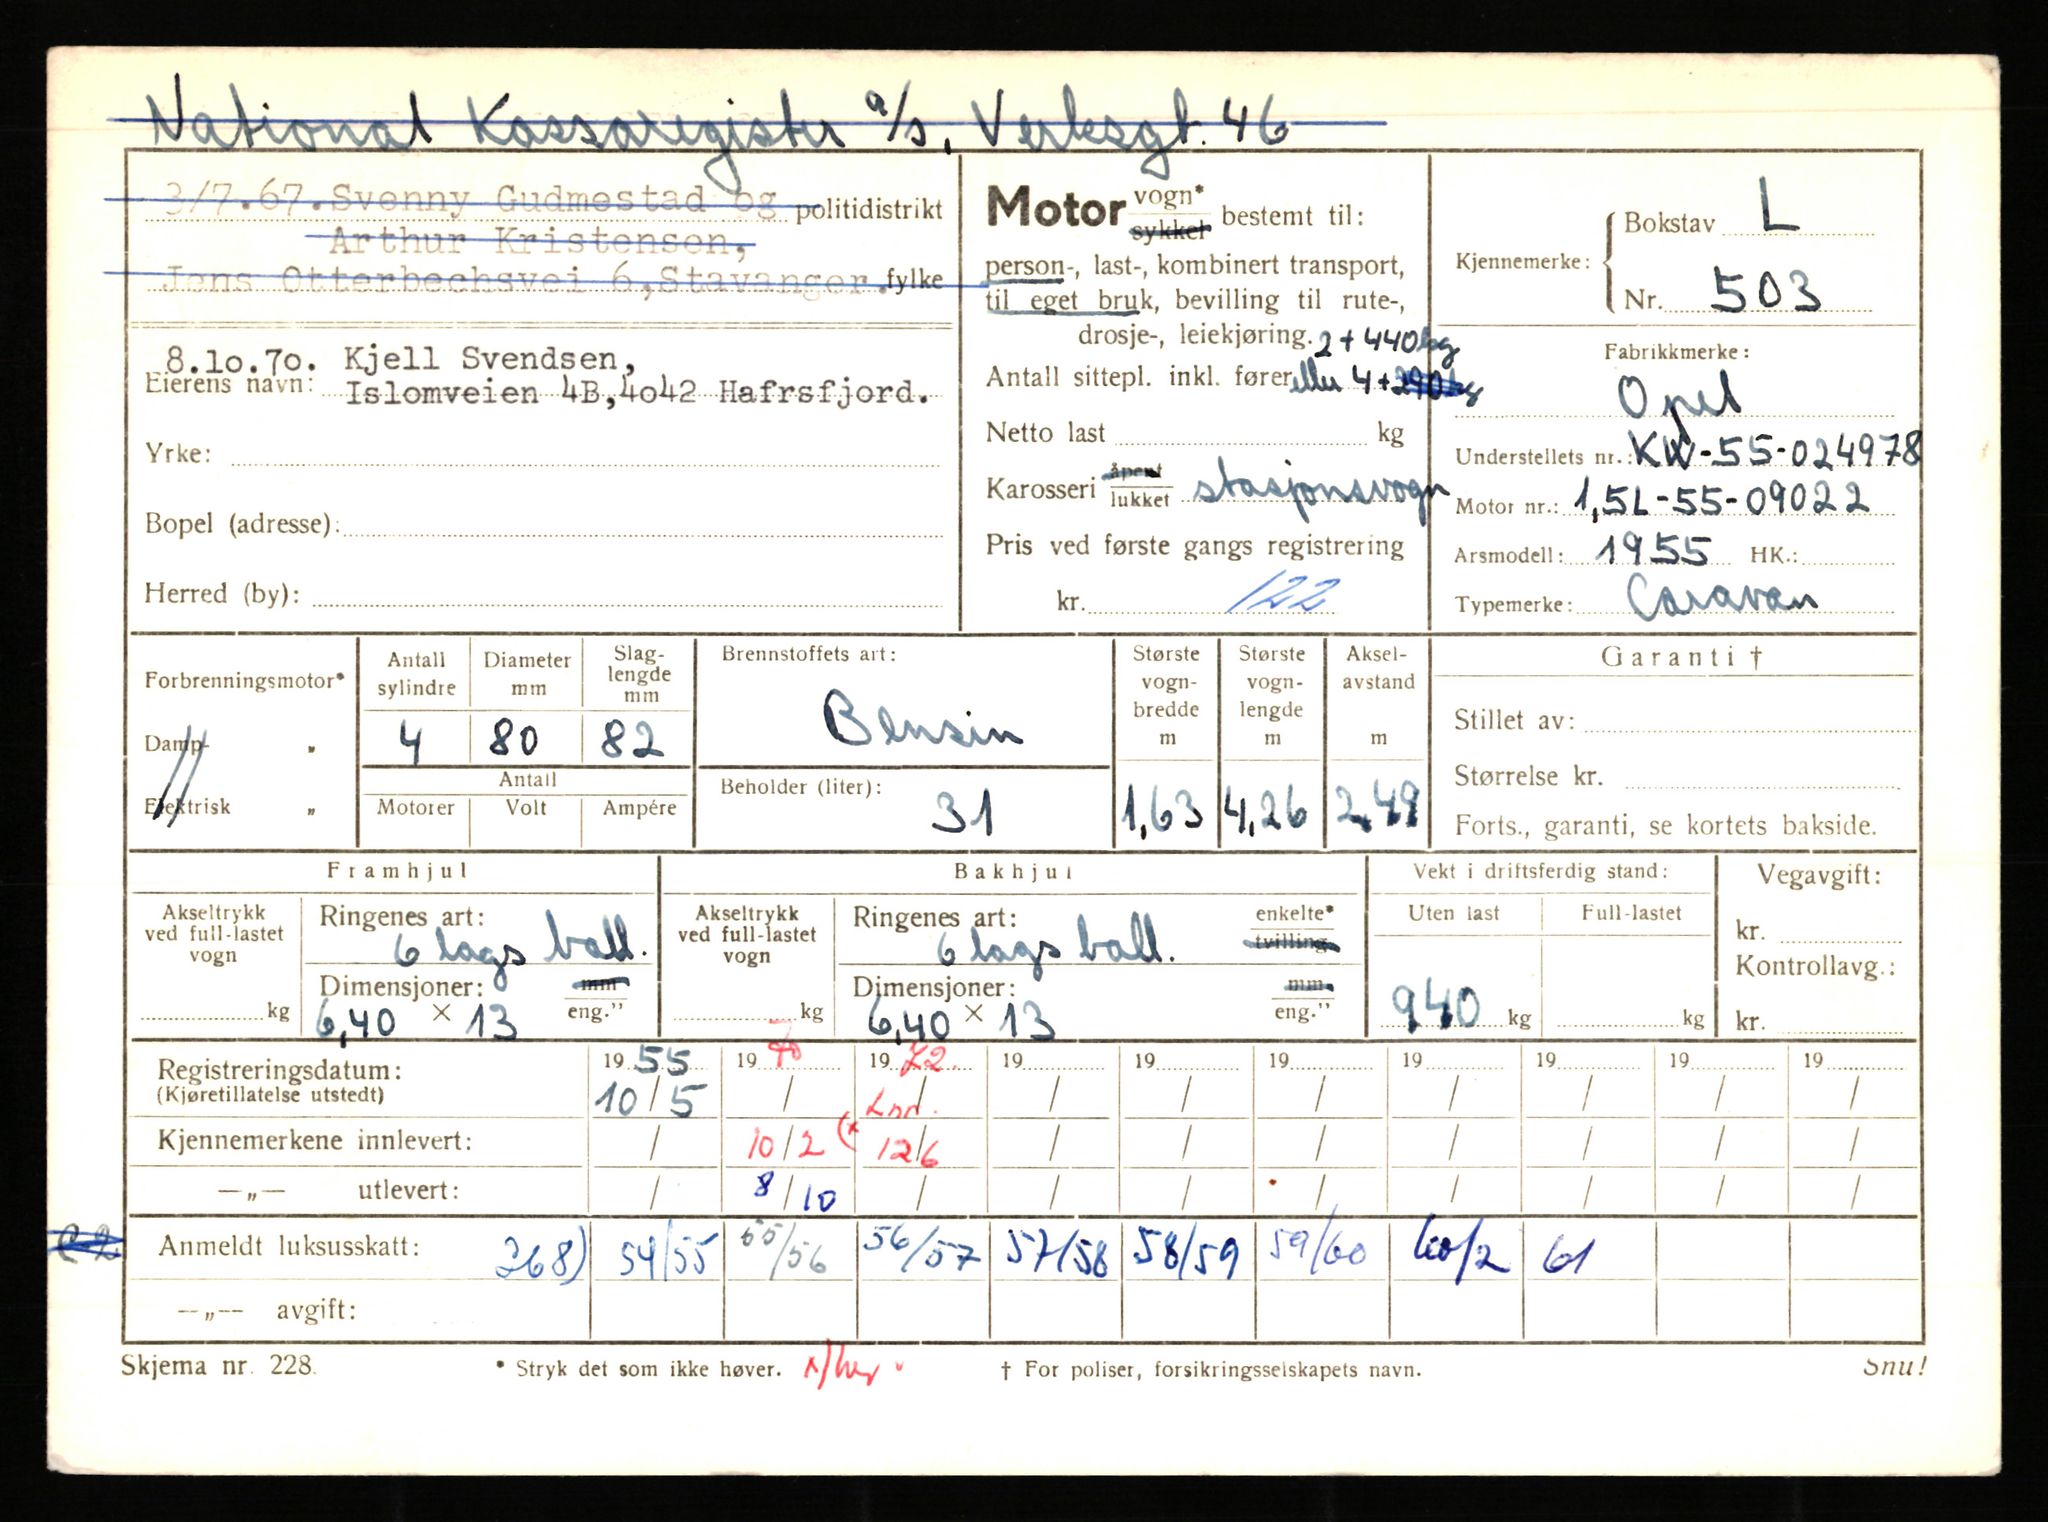 National Kassaregister a/s, Verksgt. 46
3/7.67. Svenny Gudmestad og politidistrikt
Arthur Kristensen,
Jens Otterbechsvei 6, Stavanger. fylke
8.10.70. Kjell Svendsen,
Eierens navn: Islomveien 4B, 4o42 Hafrsfjord.
Yrke:
Bopel (adresse):
Herred (by):
Motor vogn* sykkel bestemt til:
person-, last-, kombinert transport,
til eget bruk, bevilling til rute-,
drosje-, leiekjøring. 2 + 440 kg
Antall sittepl. inkl. fører eller 4 + 290 kg
Netto last kg
Karosseri åpent lukket stasjonsvogn
Pris ved første gangs registrering
kr. 122
Kjennemerke: Bokstav L
Nr. 503
Fabrikkmerke:
Opel
Understellets nr.: KW-55-024978
Motor nr.: 1,5L-55-09022
Arsmodell: 1955 HK.:
Typemerke: Caravan
Forbrenningsmotor*
Damp- „
Elektrisk „
Antall sylindre Diameter mm Slag-lengde mm
4 80 82
Antall
Motorer Volt Ampére
Brennstoffets art:
Bensin
Beholder (liter):
31
Største vogn-bredde m Største vogn-lengde m Aksel-avstand m
1,63 4,26 2,49
Garanti †
Stillet av:
Størrelse kr.
Forts., garanti, se kortets bakside.
Framhjul
Akseltrykk ved full-lastet vogn
kg
Ringenes art:
6 lags ball.
Dimensjoner: mm eng."
6,40 × 13
Bakhjul
Akseltrykk ved full-lastet vogn
kg
Ringenes art: enkelte* tvilling
6 lags ball.
Dimensjoner: mm eng."
6,40 × 13
Vekt i driftsferdig stand:
Uten last Full-lastet
940 kg kg
Vegavgift:
kr.
Kontrollavg.:
kr.
Registreringsdatum: 19 55 19 70 19 72. 19 19 19 19 19 19 19
(Kjøretillatelse utstedt) 10/5 / / / / / / / / /
Lnr.
Kjennemerkene innlevert: / 10/2 (x 12/6 / / / / / / /
—„— utlevert: / 8/10 / / / / / / / /
Anmeldt luksusskatt: 268) 54/55 55/56 56/57 57/58 58/59 59/60 60/2 61
—„— avgift:
Skjema nr. 228. * Stryk det som ikke høver. † For poliser, forsikringsselskapets navn. Snu!